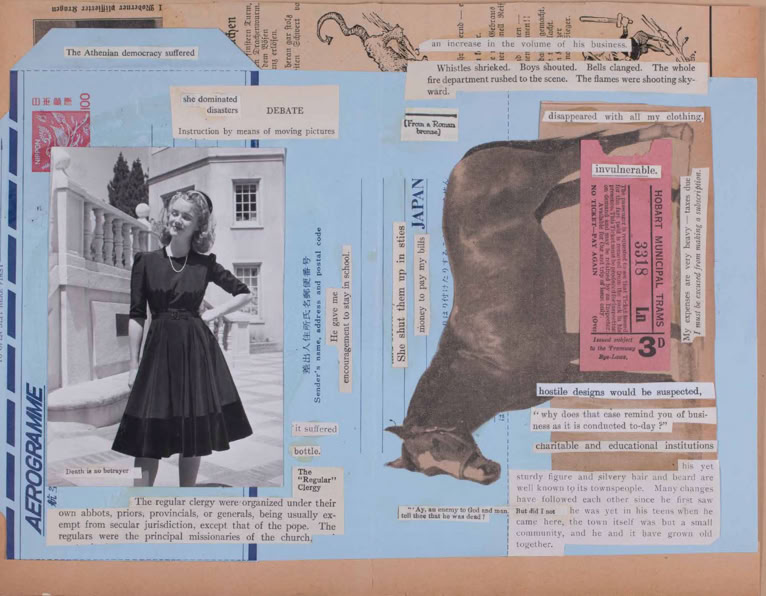 The Athenian democracy suffered
an increase in the volume of his business.
Whistles shrieked. Boys shouted. Bells clanged. The whole
fire department rushed to the scene. The flames were shooting sky-
ward.
日本郵便
100
NIPPON
she dominated
disasters
DEBATE
Instruction by means of moving pictures
[From a Roman
bronze]
disappeared with all my clothing.
invulnerable.
HOBART MUNICIPAL TRAMS
3318
Ln
3D
(Over)
Issued subject
to the Tramway
Bye-Laws.
NO TICKET—PAY AGAIN
My expenses are very heavy — taxes due
I must be excused from making a subscription.
JAPAN
She shut them up in sties
money to pay my bills
差出人住所氏名郵便番号
Sender's name, address and postal code
He gave me
encouragement to stay in school.
AEROGRAMME
Death is no betrayer
it suffered
bottle.
The
"Regular"
Clergy
The regular clergy were organized under their
own abbots, priors, provincials, or generals, being usually ex-
empt from secular jurisdiction, except that of the pope. The
regulars were the principal missionaries of the church,
hostile designs would be suspected,
"why does that case remind you of busi-
ness as it is conducted to-day?"
charitable and educational institutions
his yet
sturdy figure and silvery hair and beard are
well known to its townspeople. Many changes
have followed each other since he first saw
But did I not he was yet in his teens when he
came here, the town itself was but a small
community, and he and it have grown old
together.
"'Ay, an enemy to God and man
tell thee that he was dead?